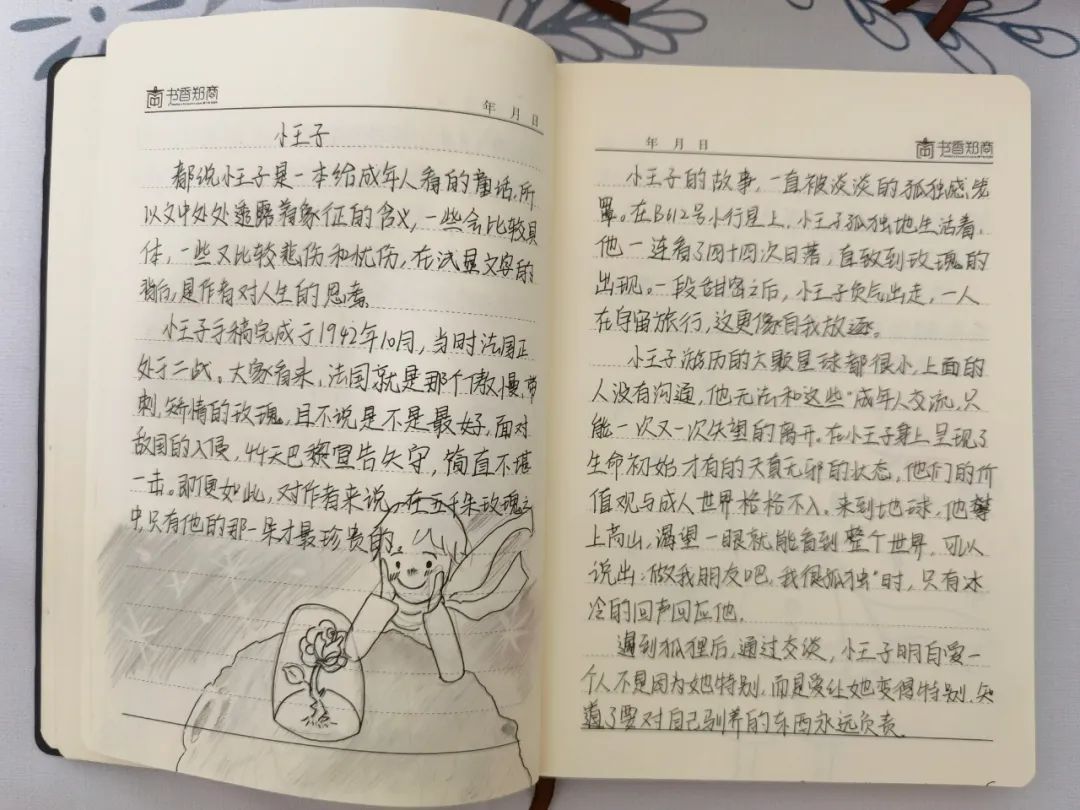 书香郑商
年 月 日
小王子
都说小王子是一本给成年人看的童话,所
以文中处处透露着象征的含义,一些会比较具
体,一些又比较悲伤和忧伤,在浅显文字的
背后,是作者对人生的思考。
小王子手稿完成于1942年10月,当时法国正
处于二战。大家看来,法国就是那个傲慢,带
刺,矫情的玫瑰,且不说是不是最好,面对
敌国的入侵,44天巴黎宣告失守,简直不堪
一击。即便如此,对作者来说,在五千朵玫瑰之
中,只有他的那一朵才最珍贵的。
年 月 日
书香郑商
小王子的故事,一直被淡淡的孤独感笼
罩。在B612号小行星上,小王子孤独地生活着,
他一连看了四十四次日落,直致到玫瑰的
出现。一段甜密之后,小王子负气出走,一人
在宇宙旅行,这更像自我放逐。
小王子游历的六颗星球都很小,上面的
人没有沟通,他无法和这些"成年人交流,只
能一次又一次失望的离开。在小王子身上呈现了
生命初始才有的天真无邪的状态,他们的价
值观与成人世界格格不入。来到地球,他攀
上高山,渴望一眼就能看到整个世界,可以
说出:做我朋友吧,我很孤独"时,只有冰
冷的回声回应他.
遇到狐狸后,通过交谈,小王子明白爱一
个人不是因为她特别,而是爱让她变得特别.知
道了要对自己驯养的东西永远负责.